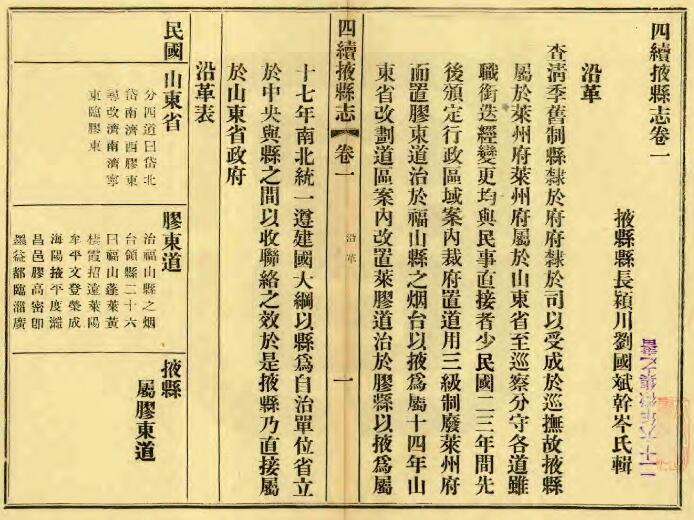 四續掖縣志卷一
掖縣縣長潁川劉國斌幹岑氏輯
沿革
查淸季舊制縣隸於府府隸於司以受成於巡撫故掖縣
屬於萊州府萊州府屬於山東省至巡察分守各道雖
職銜迭經變更均與民事直接者少民國二三年間先
後頒定行政區域案內裁府置道用三級制廢萊州府
而置膠東道治於福山縣之烟台以掖爲屬十四年山
東省改劃道區案內改置萊膠道治於膠縣以掖爲屬
四續掖縣志
卷一
沿革
一
十七年南北統一遵建國大綱以縣爲自治單位省立
於中央與縣之間以收聯絡之效於是掖縣乃直接屬
於山東省政府
沿革表
民國
山東省
分四道曰岱北
岱南濟西膠東
尋改濟南濟寧
東臨膠東
膠東道
治福山縣之烟
台領縣二十六
曰福山蓬萊黃
棲霞招遠萊陽
牟平文登榮成
海陽掖平度濰
昌邑膠高密卽
墨益都臨淄廣
掖縣
屬膠東道